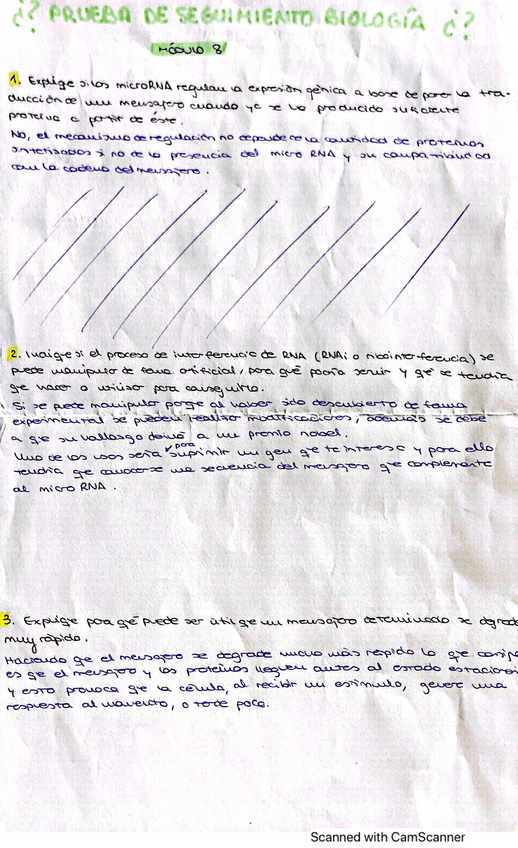 ¿? PRUEBA DE SEGUIMIENTO BIOLOGÍA ¿?
MÓDULO 8
1. Explige si los microRNA regulan la expresión génica a base de parar la tra-
ducción de un mensajero cuando ya se ha producido suficiente
proteína a partir de éste.
No, el mecanismo de regulación no depende de la cantidad de proteínas
sintetizadas si no de la presencia del micro RNA y su compatibilidad
con la cadena del mensajero.
2. Indige si el proceso de interferencia de RNA (RNAi o ribointerferencia) se
puede manipular de forma artificial, para qé podría servir y qé se tendría
qe hacer o utilizar para conseguirlo.
Si se puede manipular porqe al haber sido descubierto de forma
experimental se pueden realizar modificaciones, además se debe
a qe su hallazgo derivó a un premio nobel.
Uno de los usos sería para suprimir un gen qe te interese y para ello
tendría qe conocerse una secuencia del mensajero qe complemente
al micro RNA.
3. Explige por qé puede ser útil qe un mensajero determinado se degrade
muy rápido.
Haciendo qe el mensajero se degrade mucho más rápido lo qe
es qe el mensajero y las proteínas lleguen antes al estado
y esto provoca qe la célula, al recibir un estímulo, genere una
respuesta al momento, o tarde poco.
Scanned with CamScanner